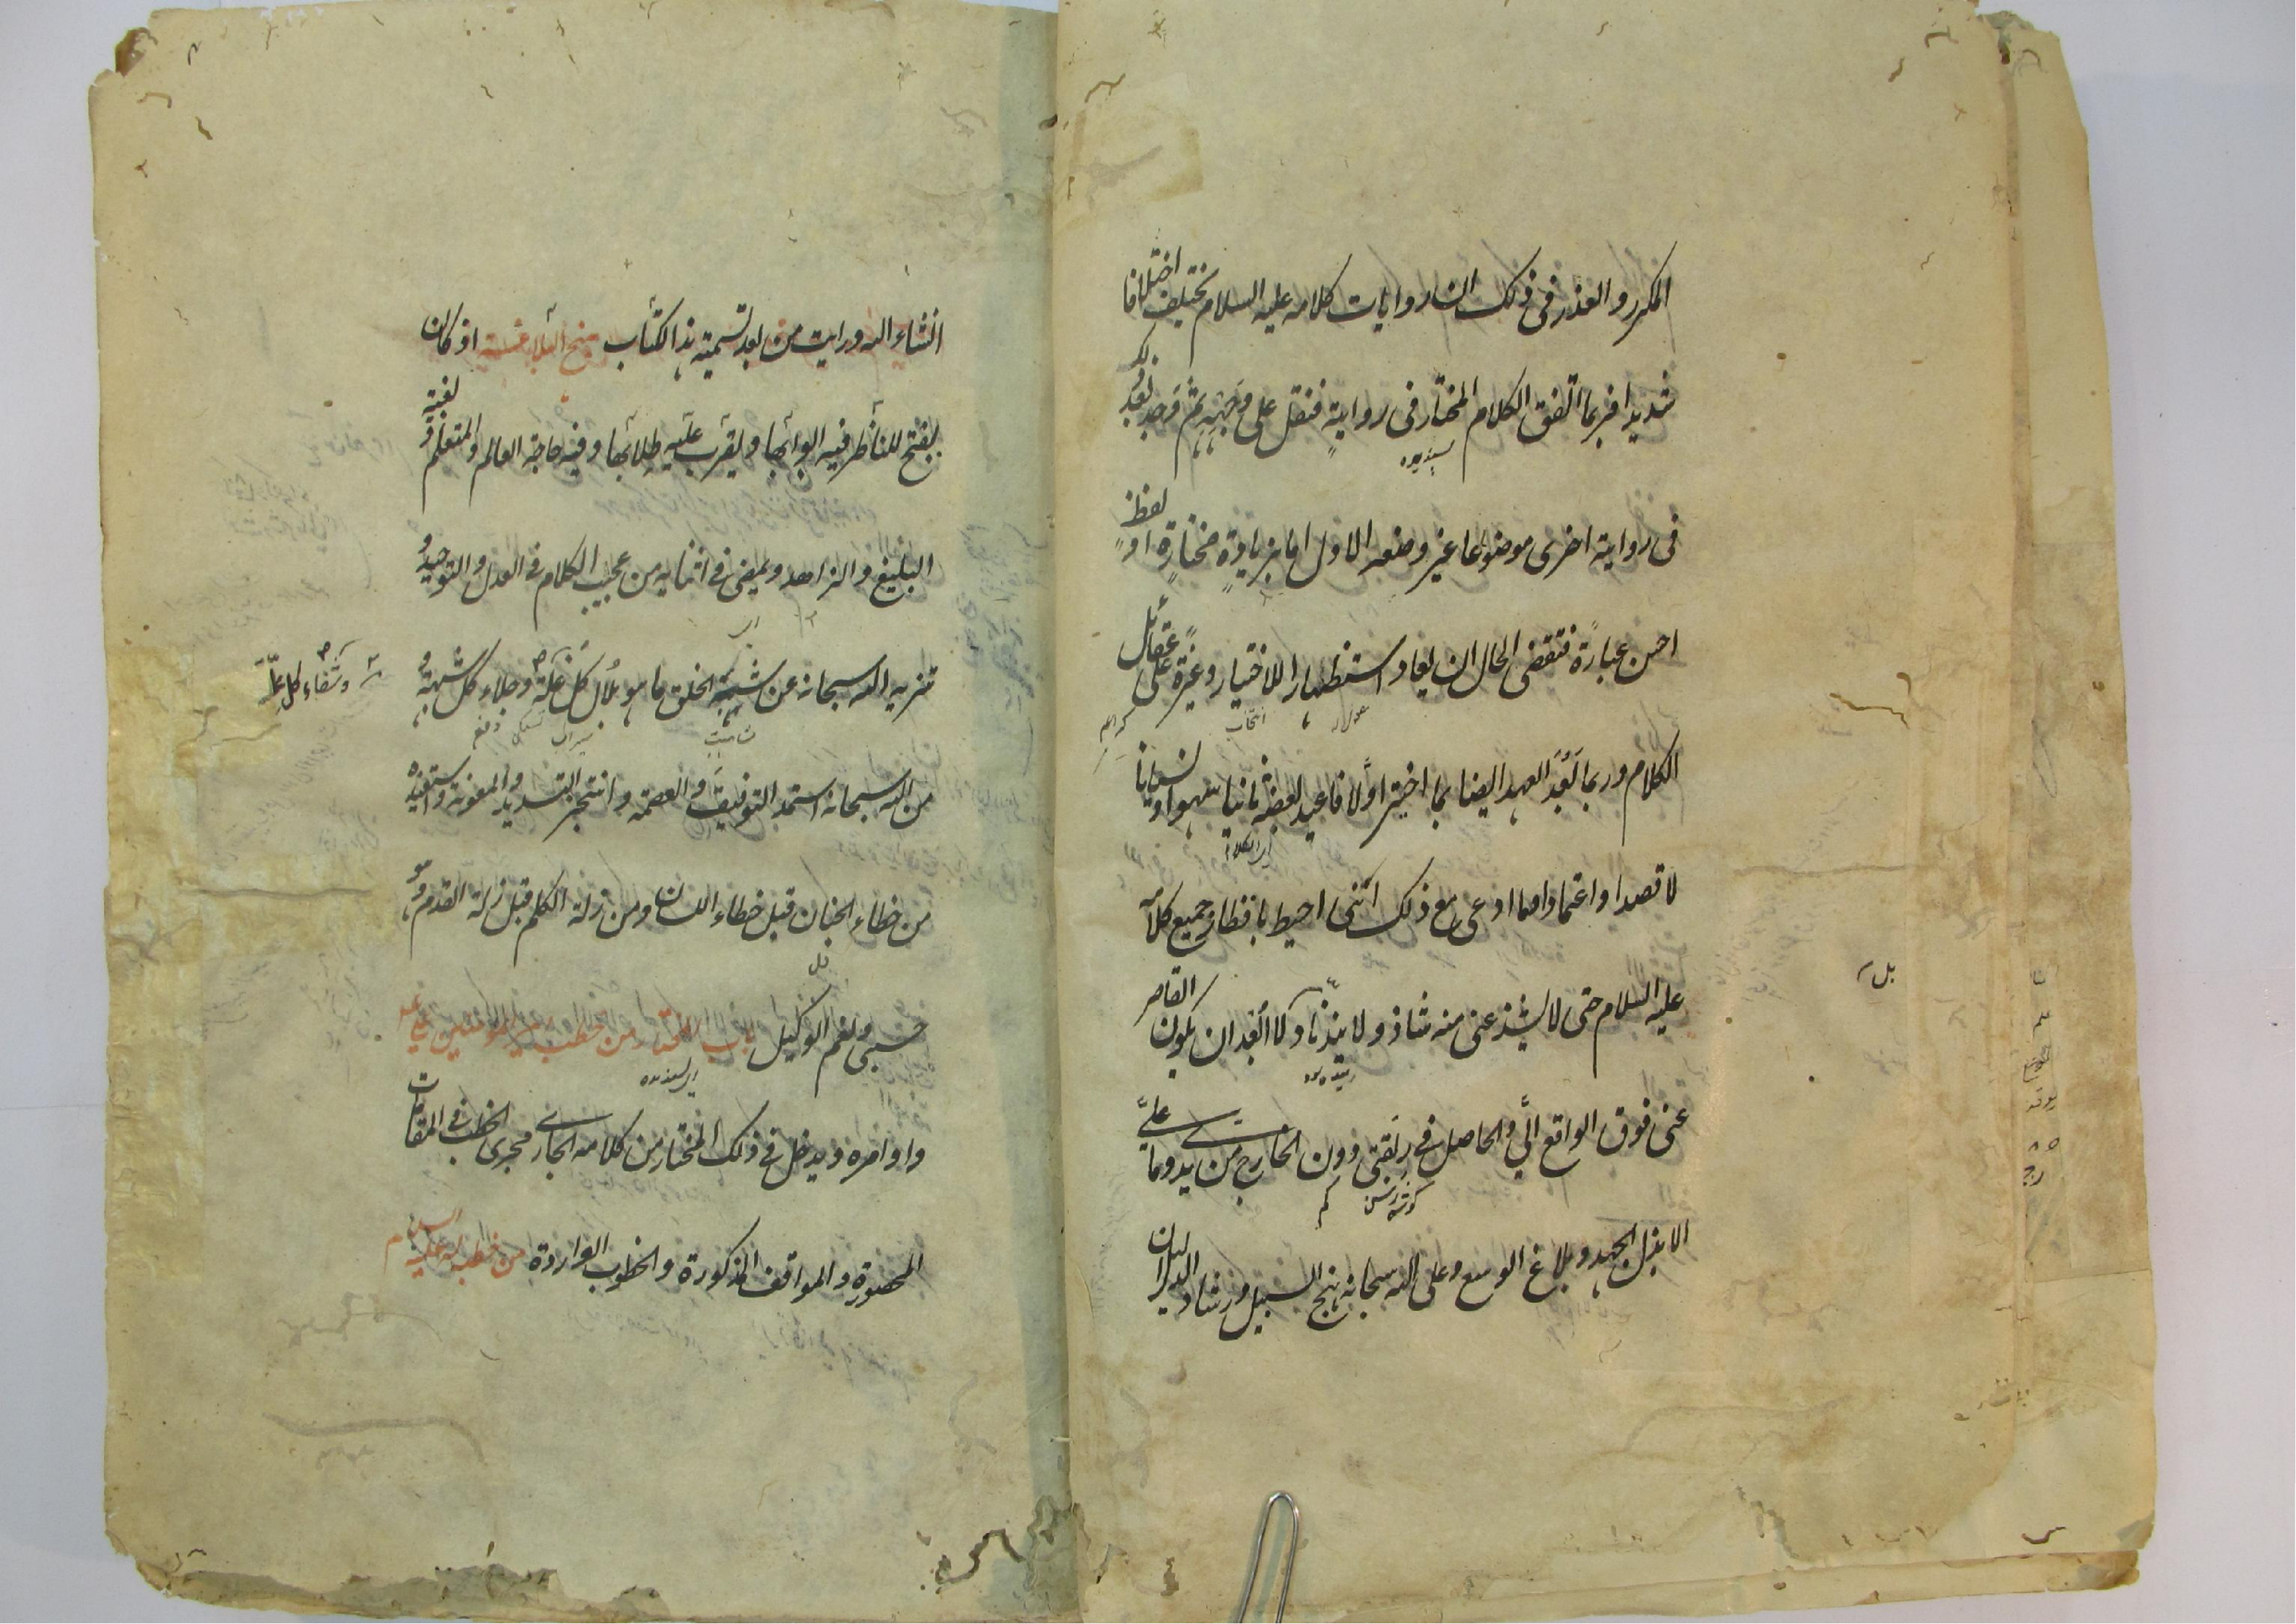 المكرر والعذر فى ذلك ان روايات كلامه عليه السلام تختلف اختلافا
شديدا فربما اتفق الكلام المختار فى رواية فنقل على وجهه ثم وجد بعد ذلك
فى رواية اخرى موضوعا غير وضعه الاول اما بزيادة مختارة او لفظ
احسن عبارة فتقضى الحال ان يعاد استظهارا للاختيار وغيرة على عقائل
الكلام وربما بعد العهد ايضا بما اختير اولا فاعيد بعضه ثانيا سهوا او نسيانا
لا قصدا واعتمادا وما ادعى مع ذلك اننى احيط باقطار جميع كلامه
عليه السلام حتى لا يشذ عنى منه شاذ ولا يند ناد كلا ابعد ان يكون القاصر
بل
عنى فوق الواقع الى والحاصل فى ربقتى دون الخارج من يدى وما على
الا بذل الجهد وبلاغ الوسع وعلى الله سبحانه نهج السبيل ورشاد الدليل ان
انشاء الله ورايت من بعد تسمية هذا الكتاب نهج البلاغة اذ كان
يفتح للناظر فيه ابوابها ويقرب عليه طلابها وفيه حاجة العالم والمتعلم وبغية
البليغ والزاهد ويمضى فى اثنائه من عجيب الكلام فى العدل والتوحيد و
تنزيه الله سبحانه عن شبه الخلق ما هو بلال كل غلة وجلاء كل شبهة و
وشفاء كل علة
من الله سبحانه استمد التوفيق والعصمة وانتجز التسديد والمعونة واستعيذه
من خطاء الجنان قبل خطاء اللسان ومن زلة الكلم قبل زلة القدم وهو
حسبى ونعم الوكيل باب المختار من خطب امير المؤمنين عليه
واوامره ويدخل فى ذلك المختار من كلامه الجارى مجرى الخطب فى المقامات
المحصورة والمواقف المذكورة والخطوب الواردة من خطبة له عليه السلام